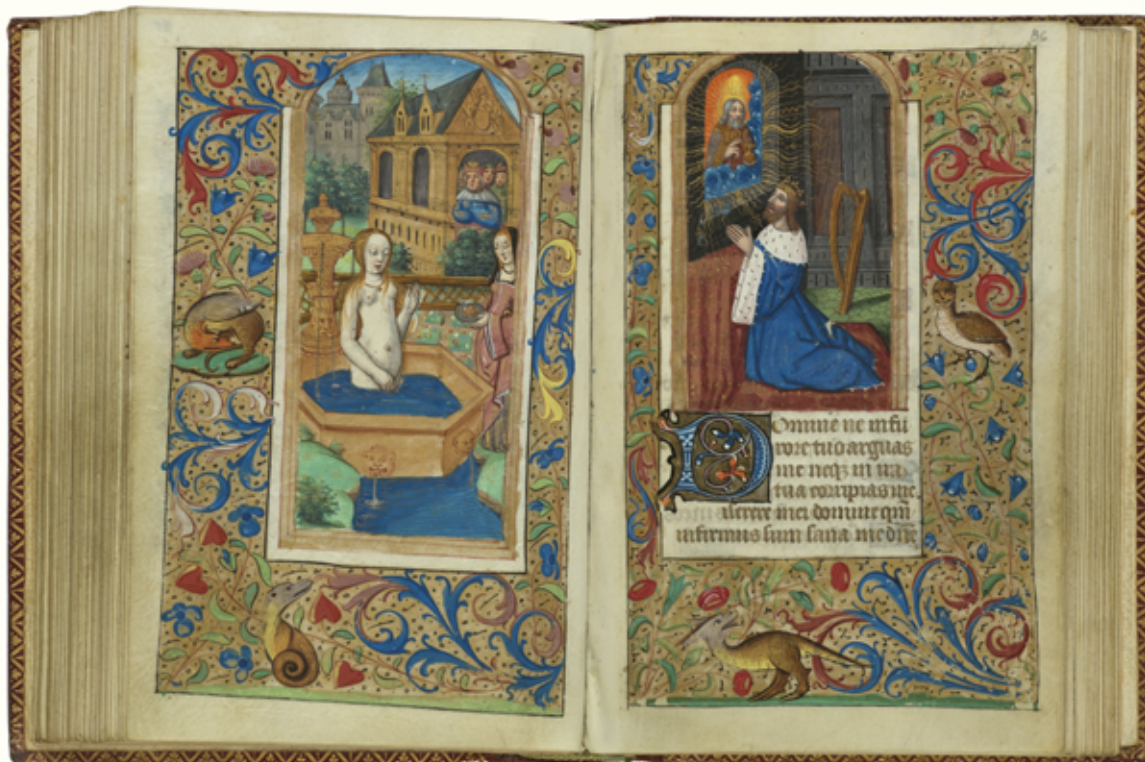 86
Domine ne in fu
rore tuo arguas
me neqꝫ in ira
tua corripias me.
Miserere mei domine qm̄
infirmus sum sana me dn̄e